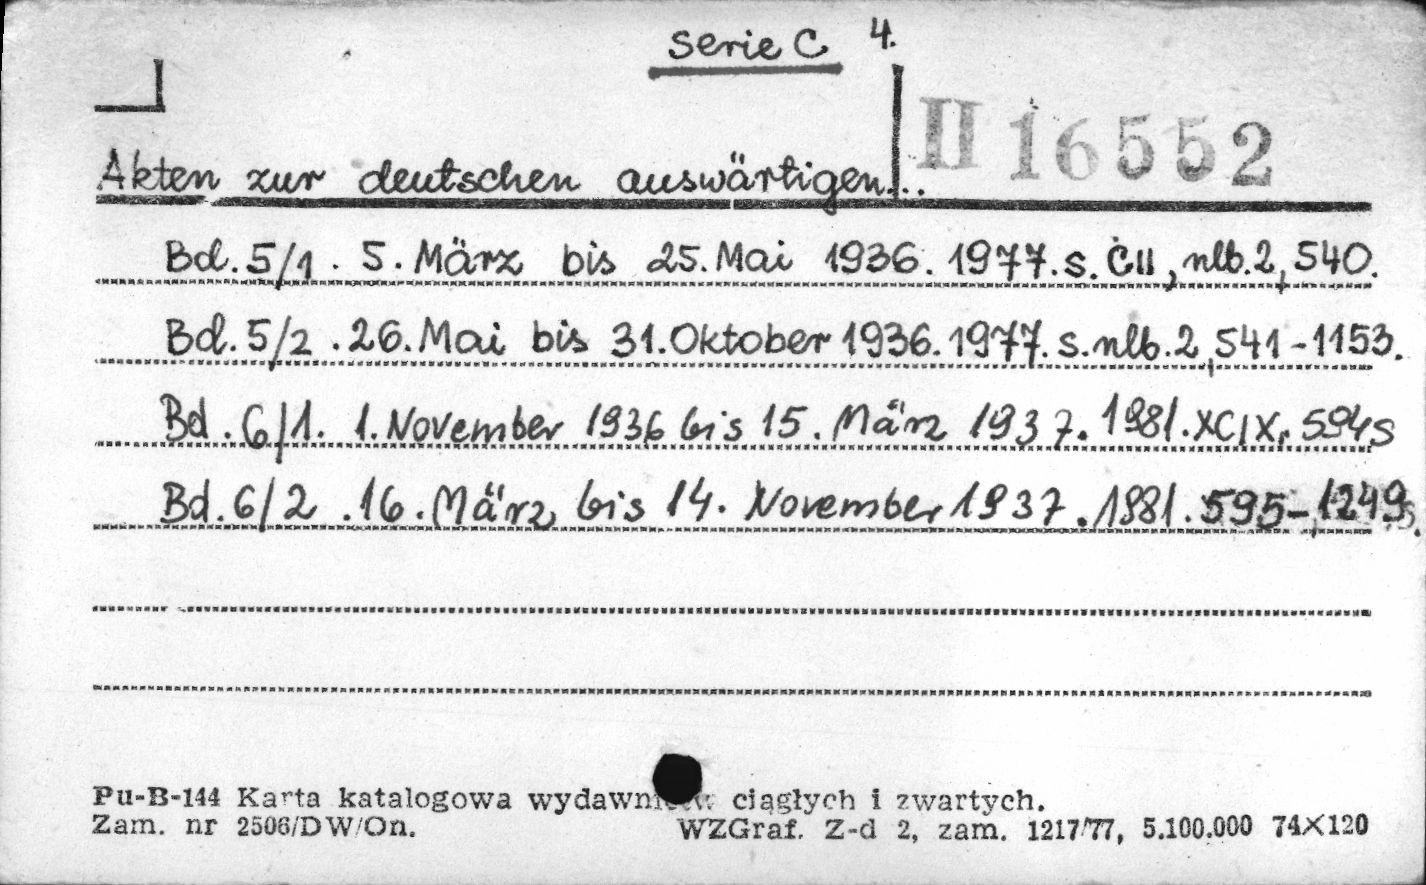 Serie C 4.
II 16552
Akten zur deutschen auswärtigen...
Bd. 5/1. 5. März bis 25. Mai 1936. 1977. S. CII, nlb. 2, 540.
Bd. 5/2. 26. Mai bis 31. Oktober 1936. 1977. S. nlb. 2, 541-1153.
Bd. 6/1. 1. November 1936 bis 15. März 1937. 1981. XCIX, 594 s
Bd. 6/2. 16. März bis 14. November 1937. 1981. 595-1249
Pu-B-144 Karta katalogowa wydawnictw ciągłych i zwartych.
Zam. nr 2506/DW/On. WZGraf. Z-d 2, zam. 1217/77, 5.100.000 74×120